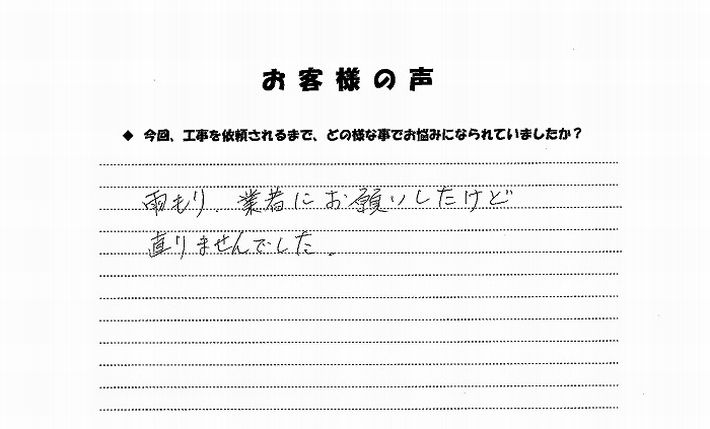 お客様の声
◆ 今回、工事を依頼されるまで、どの様な事でお悩みになられていましたか？
雨もり、業者にお願いしたけど
直りませんでした。